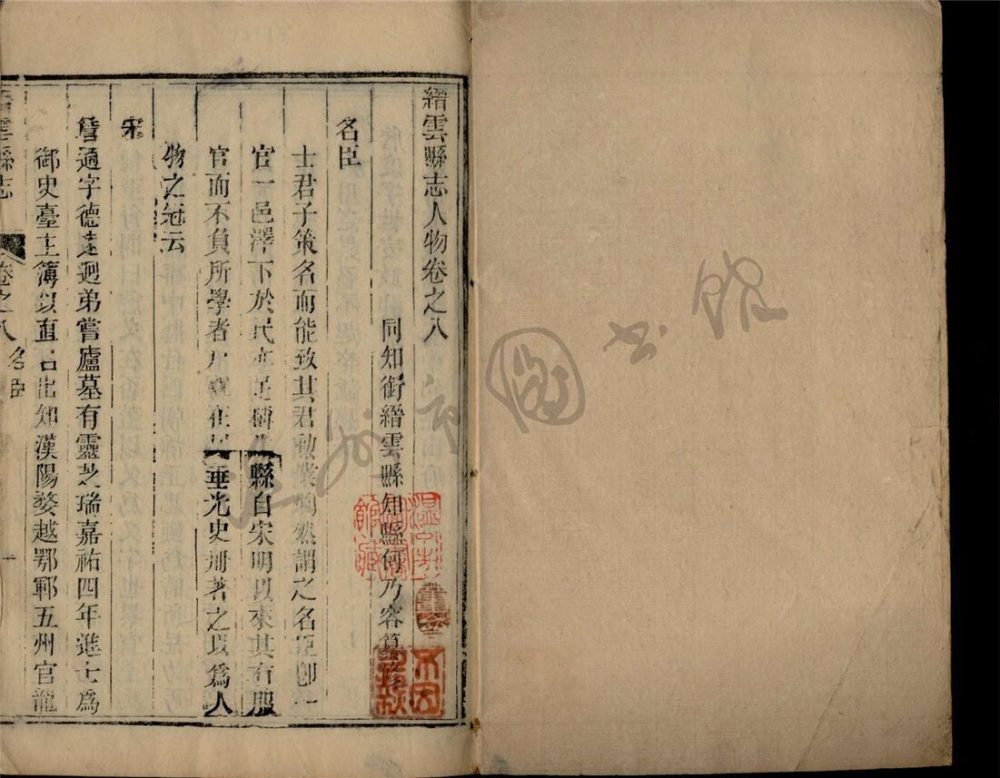 縉雲縣志人物卷之八
同知銜縉雲縣知縣何乃容纂修
名臣
士君子策名而能致其君勲業爛然謂之名臣卽一
官一邑澤下於民亦足 縣自宋明以來其有服
官而不負所學者 垂光史册著之以爲人
物之冠云
宋
詹適字德遠迥弟嘗廬墓有靈芝瑞嘉祐四年進士爲
御史臺主簿以直名出知漢陽婺越鄂鄆五州官龍
縉雲縣志
卷之八
名臣
一
溫州市圖書館
溫州圖書館藏